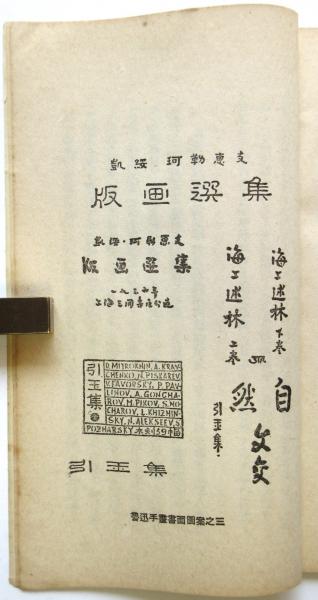 凱綏·珂勒惠支
版画選集
凱綏·珂勒惠支
版画選集
一九三六年
上海三閒書屋印造
海上述林 下卷
海上述林 上卷
自
然
文交
引玉集·
引玉集
D. MIYROKHIN, A. KRAV-
CHENKO, N. PISKAREV,
V. FAVORSKY, P. PAV-
LINOV, A. GONCHA-
ROV, M. PIKOV, S. MO-
CHAROV, L. KHIZHIN-
SKY, N. ALEKSEEV, S.
POZHARSKY 木刻59幅
引玉集
魯迅手畫書面圖案之三